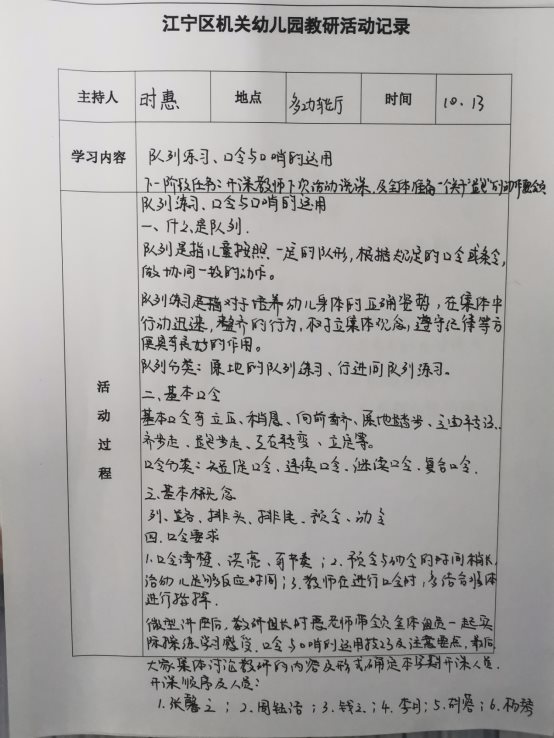 江宁区机关幼儿园教研活动记录
主持人 时惠 地点 多功能厅 时间 10.13
学习内容 队列练习、口令与口哨的运用
下一阶段任务：开课教师下次活动说课，及全体准备一个关于的动作
队列练习、口令与口哨的运用
一、什么是队列.
队列是指儿童按照一定的队形，根据规定的口令或条令，
做协同一致的动作。
队列练习是指对于培养幼儿身体的正确姿势，在集体中
行动迅速，整齐的行为，树立集体观念，遵守纪律等方
面具有良好的作用。
队列分类：原地的队列练习、行进间队列练习。
活动过程
二、基本口令
基本口令有立正、稍息、向前看齐、原地踏步、立定
齐步走、跑步走、左右转弯、立定等。
口令分类：短促口令、连续口令、继续口令、复合口令.
三、基本概念
列、路、排头、排尾、预令、动令
四、口令要求
1.口令清楚、洪亮、有节奏；2.预令与动令的时间稍长，
给幼儿足够反应时间；3.教师在进行口令时，多结合肢体
进行指挥.
微型讲座后，教研组长时惠老师带领全体组员一起实
际操练学习感受，口令与口哨的运用技巧及注意要点，最后，
大家集体讨论教研的内容及形式确定本学期开课人员.
开课顺序及人员：
1.张馨之；2.周钰洁；3.钱之；4.李月；5.刘蓉；6.杨琴